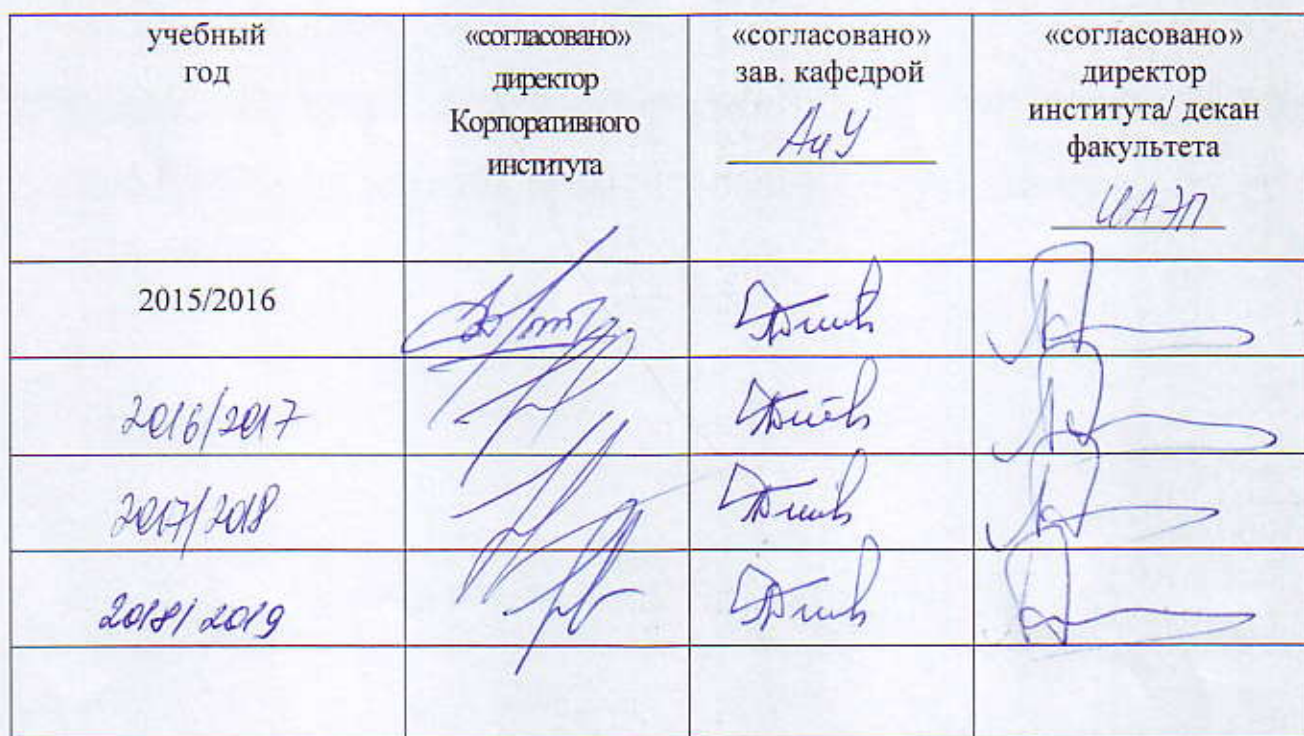 учебный
год
«согласовано»
директор
Корпоративного
института
«согласовано»
зав. кафедрой
АиУ
«согласовано»
директор
института/ декан
факультета
ИАЭП
2015/2016
2016/2017
2017/2018
2018/2019